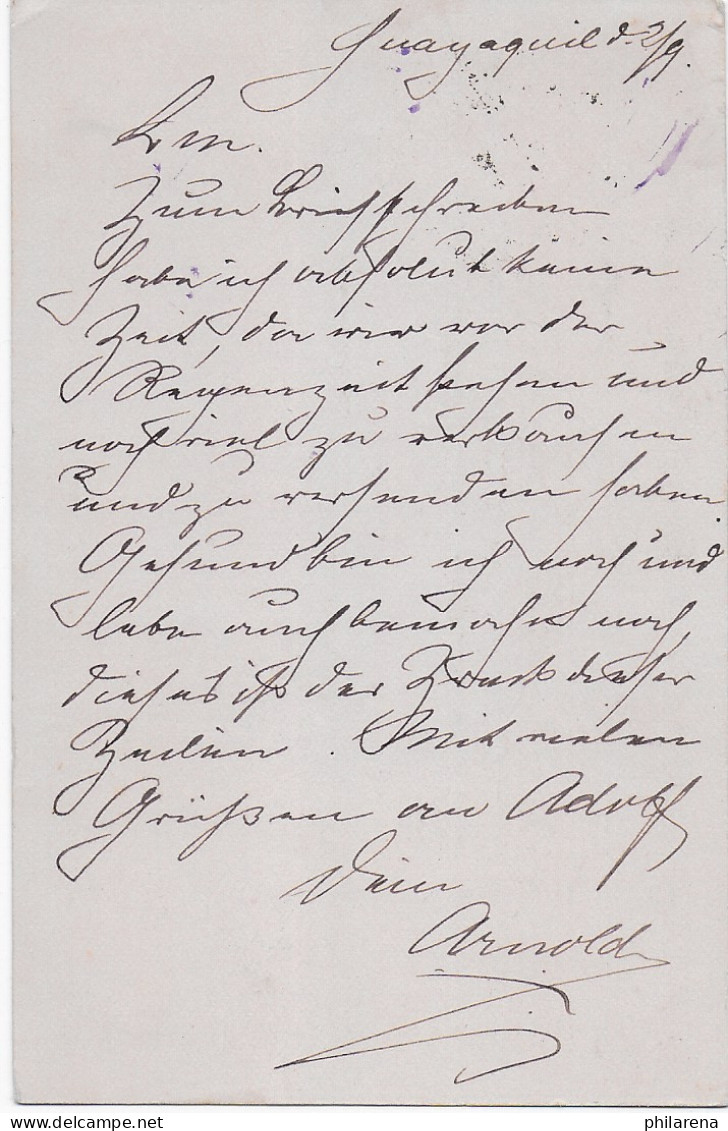 Guayaquil d. 2/9.
Zum Briefschreiben
habe ich absolut keine
Zeit, da wir vor der
Regenzeit stehen und
noch viel zu verkaufen
und zu versenden haben.
Gesund bin ich noch und
lebe auch noch,
dieses ist der Zweck dieser
Zeilen. Mit vielen
Grüßen an Adolf
Dein
Arnold
delcampe.net
philarena